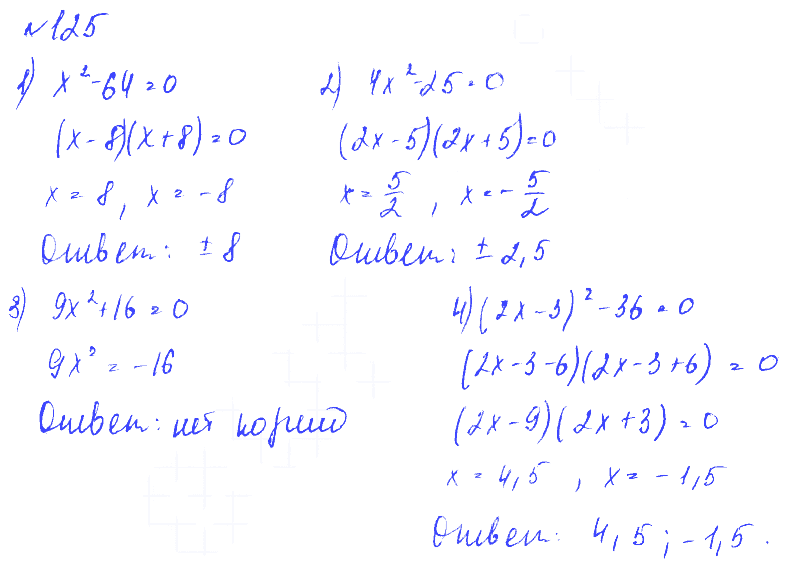 №125
1) x²-64=0
(x-8)(x+8)=0
x = 8, x = -8
Ответ: ±8
2) 4x²-25=0
(2x-5)(2x+5)=0
x = 5/2, x = -5/2
Ответ: ±2,5
3) 9x²+16=0
9x² = -16
Ответ: нет корней
4) (2x-3)²-36=0
(2x-3-6)(2x-3+6) = 0
(2x-9)(2x+3)=0
x = 4,5, x = -1,5
Ответ: 4,5; -1,5.